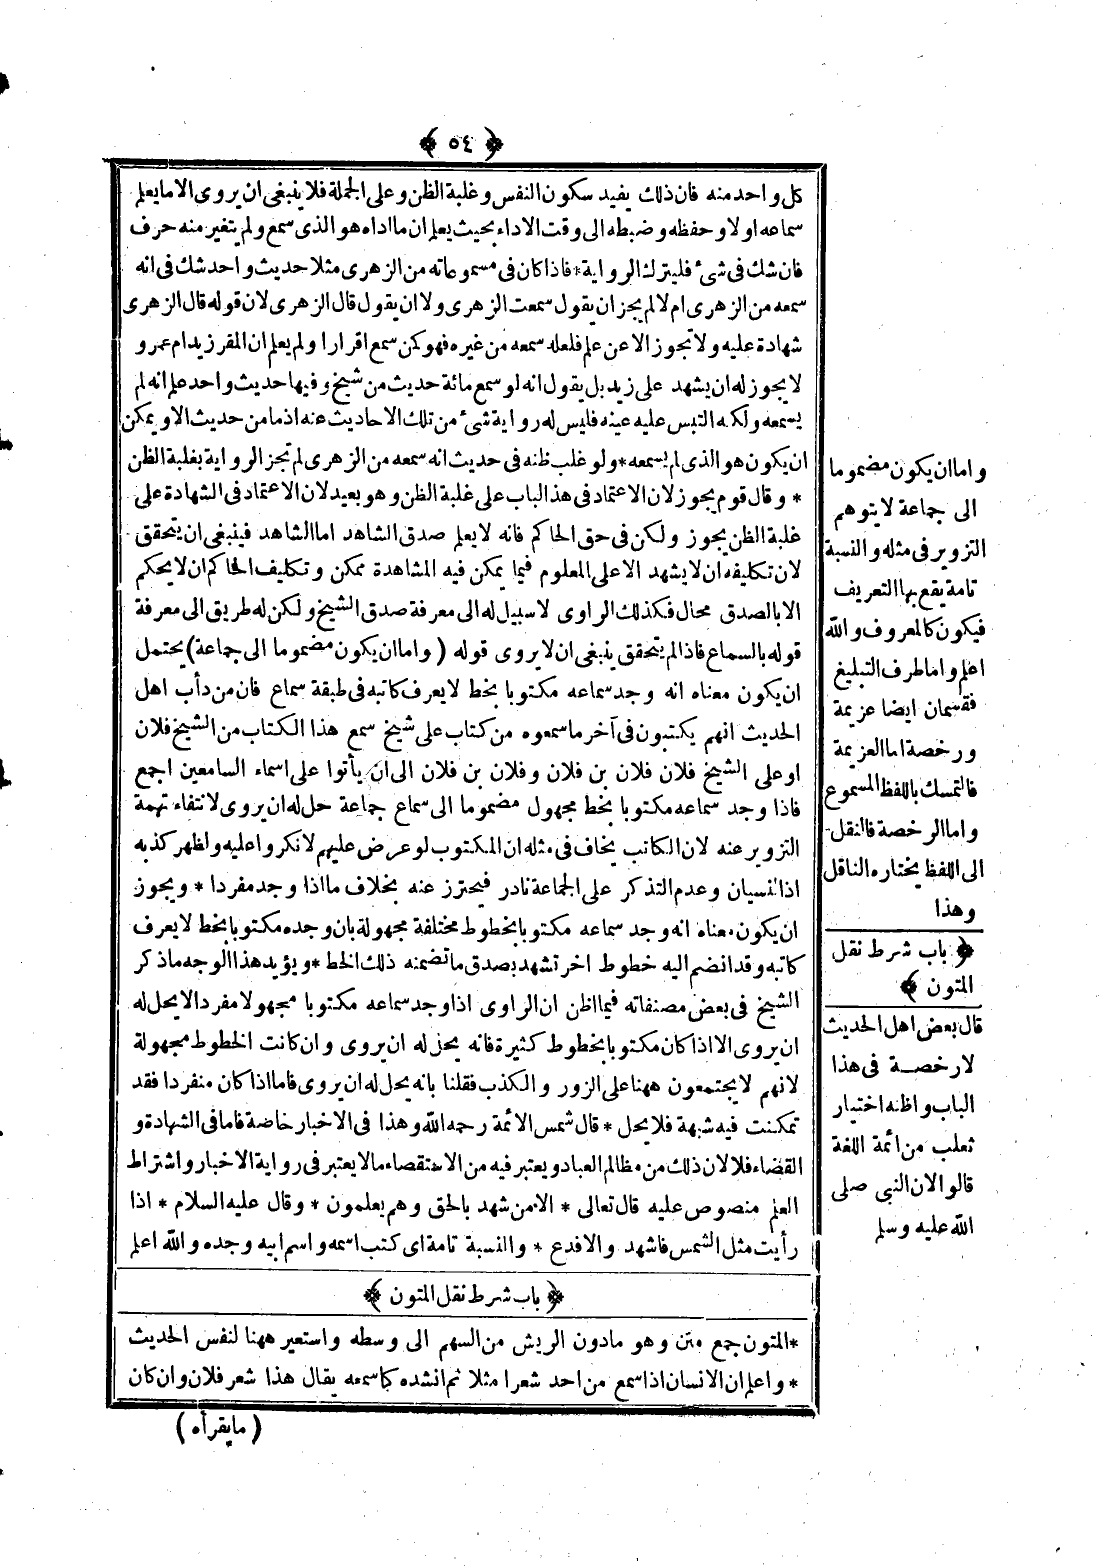 ﴿ ٥٤ ﴾
كل واحد منه فان ذلك يفيد سكون النفس وغلبة الظن وعلى الجملة فلا ينبغى ان يروى الا ما يعلم
سماعه اولا وحفظه وضبطه الى وقت الاداء بحيث يعلم ان ما اداه هو الذى سمع ولم يتغير منه حرف
فان شك فى شئ فليترك الرواية * فاذا كان فى مسموعاته من الزهرى مثلا حديث واحد شك فى انه
سمعه من الزهرى ام لا لم يجز ان يقول سمعت الزهرى ولا ان يقول قال الزهرى لان قوله قال الزهرى
شهادة عليه ولا تجوز الا عن علم فلعله سمعه من غيره فهو كمن سمع اقرارا ولم يعلم ان المقر زيد ام عمرو
لا يجوز له ان يشهد على زيد بل يقول انه لو سمع مائة حديث من شيخ وفيها حديث واحد علم انه لم
يسمعه ولكنه التبس عليه عينه فليس له رواية شئ من تلك الاحاديث عنه اذ ما من حديث الا ويمكن
ان يكون هو الذى لم يسمعه * ولو غلب ظنه فى حديث انه سمعه من الزهرى لم تجز الرواية بغلبة الظن
* وقال قوم يجوز لان الاعتماد فى هذ الباب على غلبة الظن وهو بعيد لان الاعتماد فى الشهادة على
غلبة الظن يجوز ولكن فى حق الحاكم فانه لا يعلم صدق الشاهد اما الشاهد فينبغى ان يتحقق
لان تكليفه ان لا يشهد الا على المعلوم فيما يمكن فيه المشاهدة ممكن وتكليف الحاكم ان لا يحكم
الا بالصدق محال فكذلك الراوى لا سبيل له الى معرفة صدق الشيخ ولكن له طريق الى معرفة
قوله بالسماع فاذا لم يتحقق ينبغى ان لا يروى قوله ( واما ان يكون مضموما الى جماعة) يحتمل
ان يكون معناه انه وجد سماعه مكتوبا بخط لا يعرف كاتبه فى طبقة سماع فان من دأب اهل
الحديث انهم يكتبون فى آخر ما سمعوه من كتاب على شيخ سمع هذا الكتاب من الشيخ فلان
او على الشيخ فلان فلان بن فلان وفلان بن فلان الى ان يأتوا على اسماء السامعين اجمع
فاذا وجد سماعه مكتوبا بخط مجهول مضموما الى سماع جماعة حل له ان يروى لانتفاء تهمة
التزوير عنه لان الكاتب يخاف فى مثله ان المكتوب لو عرض عليهم لانكروا عليه ولظهر كذبه
اذ النسيان وعدم التذكر على الجماعة نادر فيحترز عنه بخلاف ما اذا وجد مفردا * ويجوز
ان يكون معناه انه وجد سماعه مكتوبا بخطوط مختلفة مجهولة بان وجده مكتوبا بخط لا يعرف
كاتبه وقد انضم اليه خطوط اخر تشهد بصدق ما تضمنه ذلك الخط * ويؤيد هذا الوجه ما ذكر
الشيخ فى بعض مصنفاته فيما اظن ان الراوى اذا وجد سماعه مكتوبا مجهولا مفردا لا يحل له
ان يروى الا اذا كان مكتوبا بخطوط كثيرة فانه يحل له ان يروى وان كانت الخطوط مجهولة
لانهم لا يجتمعون ههنا على الزور والكذب فقلنا بانه يحل له ان يروى فاما اذا كان منفردا فقد
تمكنت فيه شبهة فلا يحل * قال شمس الائمة رحمه الله وهذا فى الاخبار خاصة فاما فى الشهادة و
القضاء فلا لان ذلك من مظالم العباد ويعتبر فيه من الاستقصاء ما لا يعتبر فى رواية الاخبار واشتراط
العلم منصوص عليه قال تعالى * الا من شهد بالحق وهم يعلمون * وقال عليه السلام * اذا
رأيت مثل الشمس فاشهد والا فدع * والنسبة تامة اى كتب اسمه واسم ابيه وجده والله اعلم
﴿ باب شرط نقل المتون ﴾
* المتون جمع متن وهو ما دون الريش من السهم الى وسطه واستعير ههنا لنفس الحديث
* واعلم ان الانسان اذا سمع من احد شعرا مثلا ثم انشده كما سمعه يقال هذا شعر فلان وان كان
( ما يقرأه )
واما ان يكون مضموما
الى جماعة لا يتوهم
التزوير فى مثله والنسبة
تامة يقع بها التعريف
فيكون كالمعروف والله
اعلم واما طرف التبليغ
فقسمان ايضا عزيمة
ورخصة اما العزيمة
فالتمسك باللفظ المسموع
واما الرخصة فالنقل
الى اللفظ يختاره الناقل
وهذا
﴿ باب شرط نقل
المتون ﴾
قال بعض اهل الحديث
لا رخصة فى هذا
الباب واظنه اختيار
ثعلب من ائمة اللغة
قالوا لان النبى صلى
الله عليه وسلم